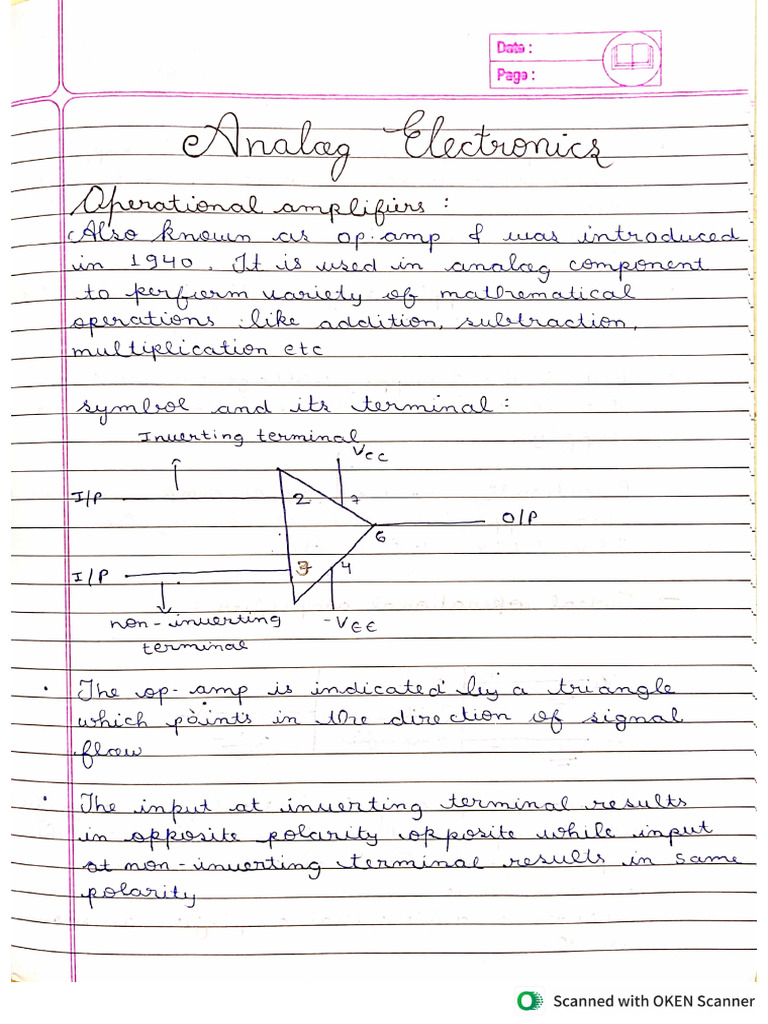 Date :
Page :
Analog Electronics
Operational amplifiers :
Also known as op.amp & was introduced
in 1940. It is used in analog component
to perform variety of mathematical
operations like addition, subtraction,
multiplication etc
symbol and its terminal :
Inverting terminal
VCC
I/P
2
7
O/P
6
I/P
3
4
non-inverting
terminal
-VEE
• The op-amp is indicated by a triangle
which points in the direction of signal
flow
• The input at inverting terminal results
in opposite polarity opposite while input
at non-inverting terminal results in same
polarity
Scanned with OKEN Scanner